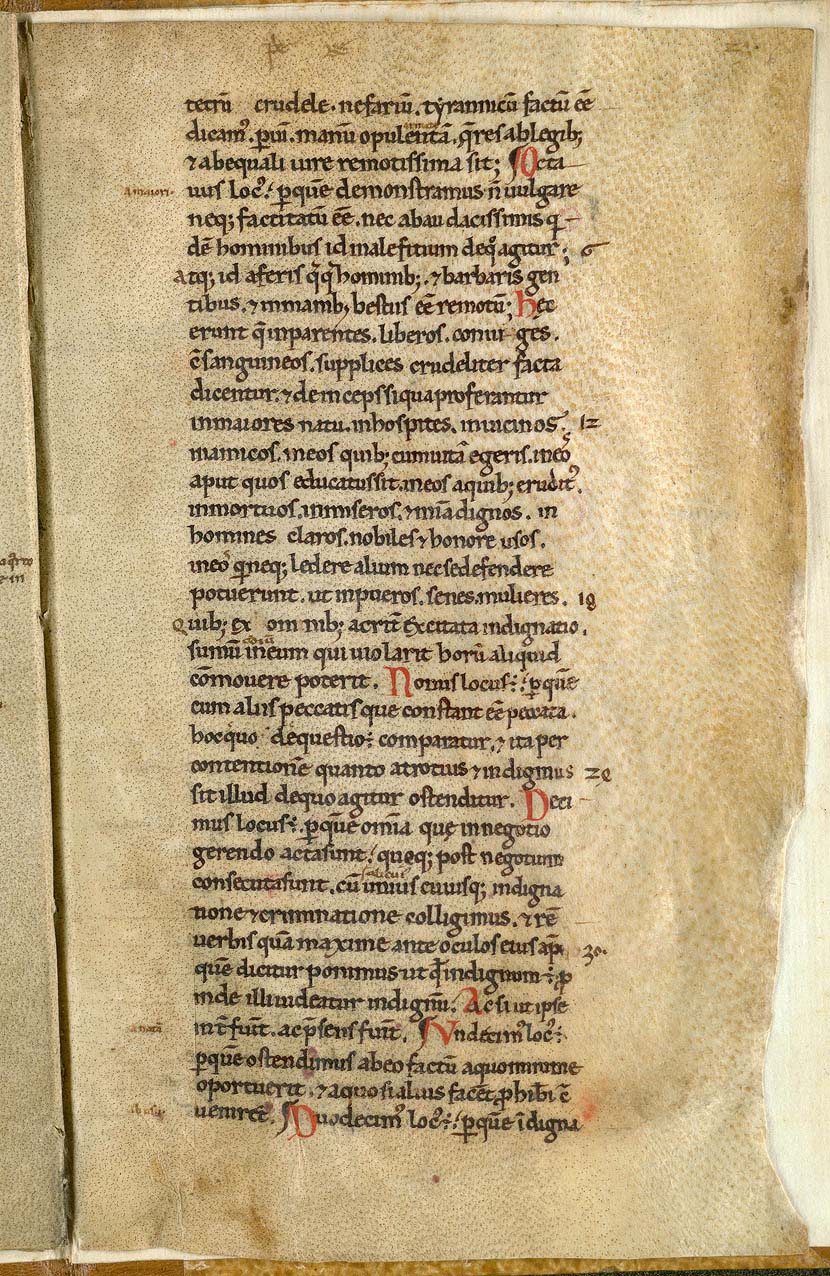 tetrū crudele. nefariū. tyrannicū factū eē
dicam᷒. p̱ uī. manū opulentā. q̄ res ab legib;
⁊ ab equali iure remotissima sit; Octa
a maiori. uus loc᷒. ÷ p̱ quē demonstramus n̄ uulgare
neq; factitatū eē. nec ab audacissimis q̱
dē hominibus id malefitium de q̊ agitur; 6
Atq; id a feris q̊q̊ hominib; ⁊ barbaris gen
tibus. ⁊ inmanib; bestiis eē remotū; Hęc
erunt q̄ in parentes. liberos. coniuges.
c̄sanguineos. supplices crudeliter facta
dicentur. ⁊ deinceps siqua proferantur
in maiores natu. in hospites. in uicinos. 12
in amicos. in eos quib; cum uitā egeris. in eos
aput quos educatus sit. in eos a quib; erudit᷒.
in mortuos. in miseros. ⁊ mīa dignos. in
homines claros. nobiles ⁊ honore usos.
in eos qui neq; ledere alium nec se defendere
potuerunt. ut in pueros. senes. mulieres. 18
Quib; ex omnib; acrit̄ excitata indignatio.
sumū in eum qui uiolarit horū aliquid
cōmouere poterit. Nonus locus ÷ p̱ quē
cum aliis peccatis que constant eē peccata.
hoc quo de questio ÷ comparatur. ⁊ ita per
contentionē quanto atrotius ⁊ indignius 24
sit illud de quo agitur ostenditur. Deci
mus locus ÷ p̱ quē omīa quę in negotio
gerendo acta sunt. quęq; post negotium
alicui
consecuta sunt. cū unius cuiusq; indigna
tione ⁊ criminatione colligimus. ⁊ rē
uerbis quā maxime ante oculos eius ap̱ 30.
quē dicitur ponimus ut qd̄ indignum ÷ p̱
inde illi uideatur indignū. Ac si ut ipse
int̄fuit. ac p̄sens fuit. Undecim᷒ loc᷒ ÷
p̱ quē ostendimus ab eo factū a quo minime
oportuerit. ⁊ a quo si alius facet̄ p̱hiberi c̄
uenir&. Duodecim᷒ loc᷒ ÷ p̱ quē īdigna